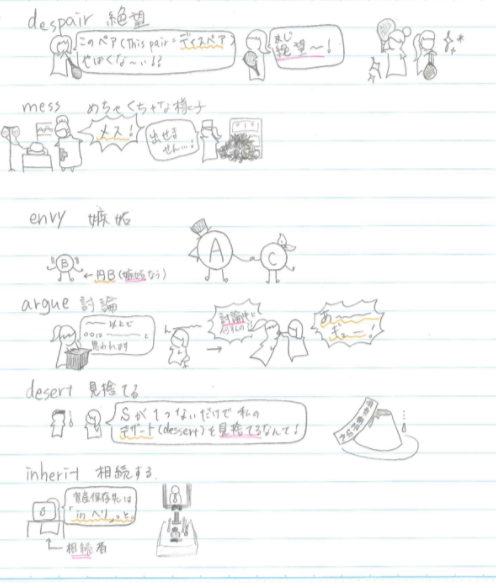 despair 絶望
このペア(This pair=ディスペア)
やばくな〜い!?
まじ
絶望〜!
mess めちゃくちゃな様子
メス!
出せま
せん…!
envy 嫉妬
A
B
C
←円B(嫉妬なう)
argue 討論
以上で
思われます
討論
あー
ぎゅー!
desert 見捨てる
Sが1つないだけで私の
デザート(dessert)を見捨てるなんて!
inherit 相続する
資産保存先は
「inヘリ」っと。
相続者